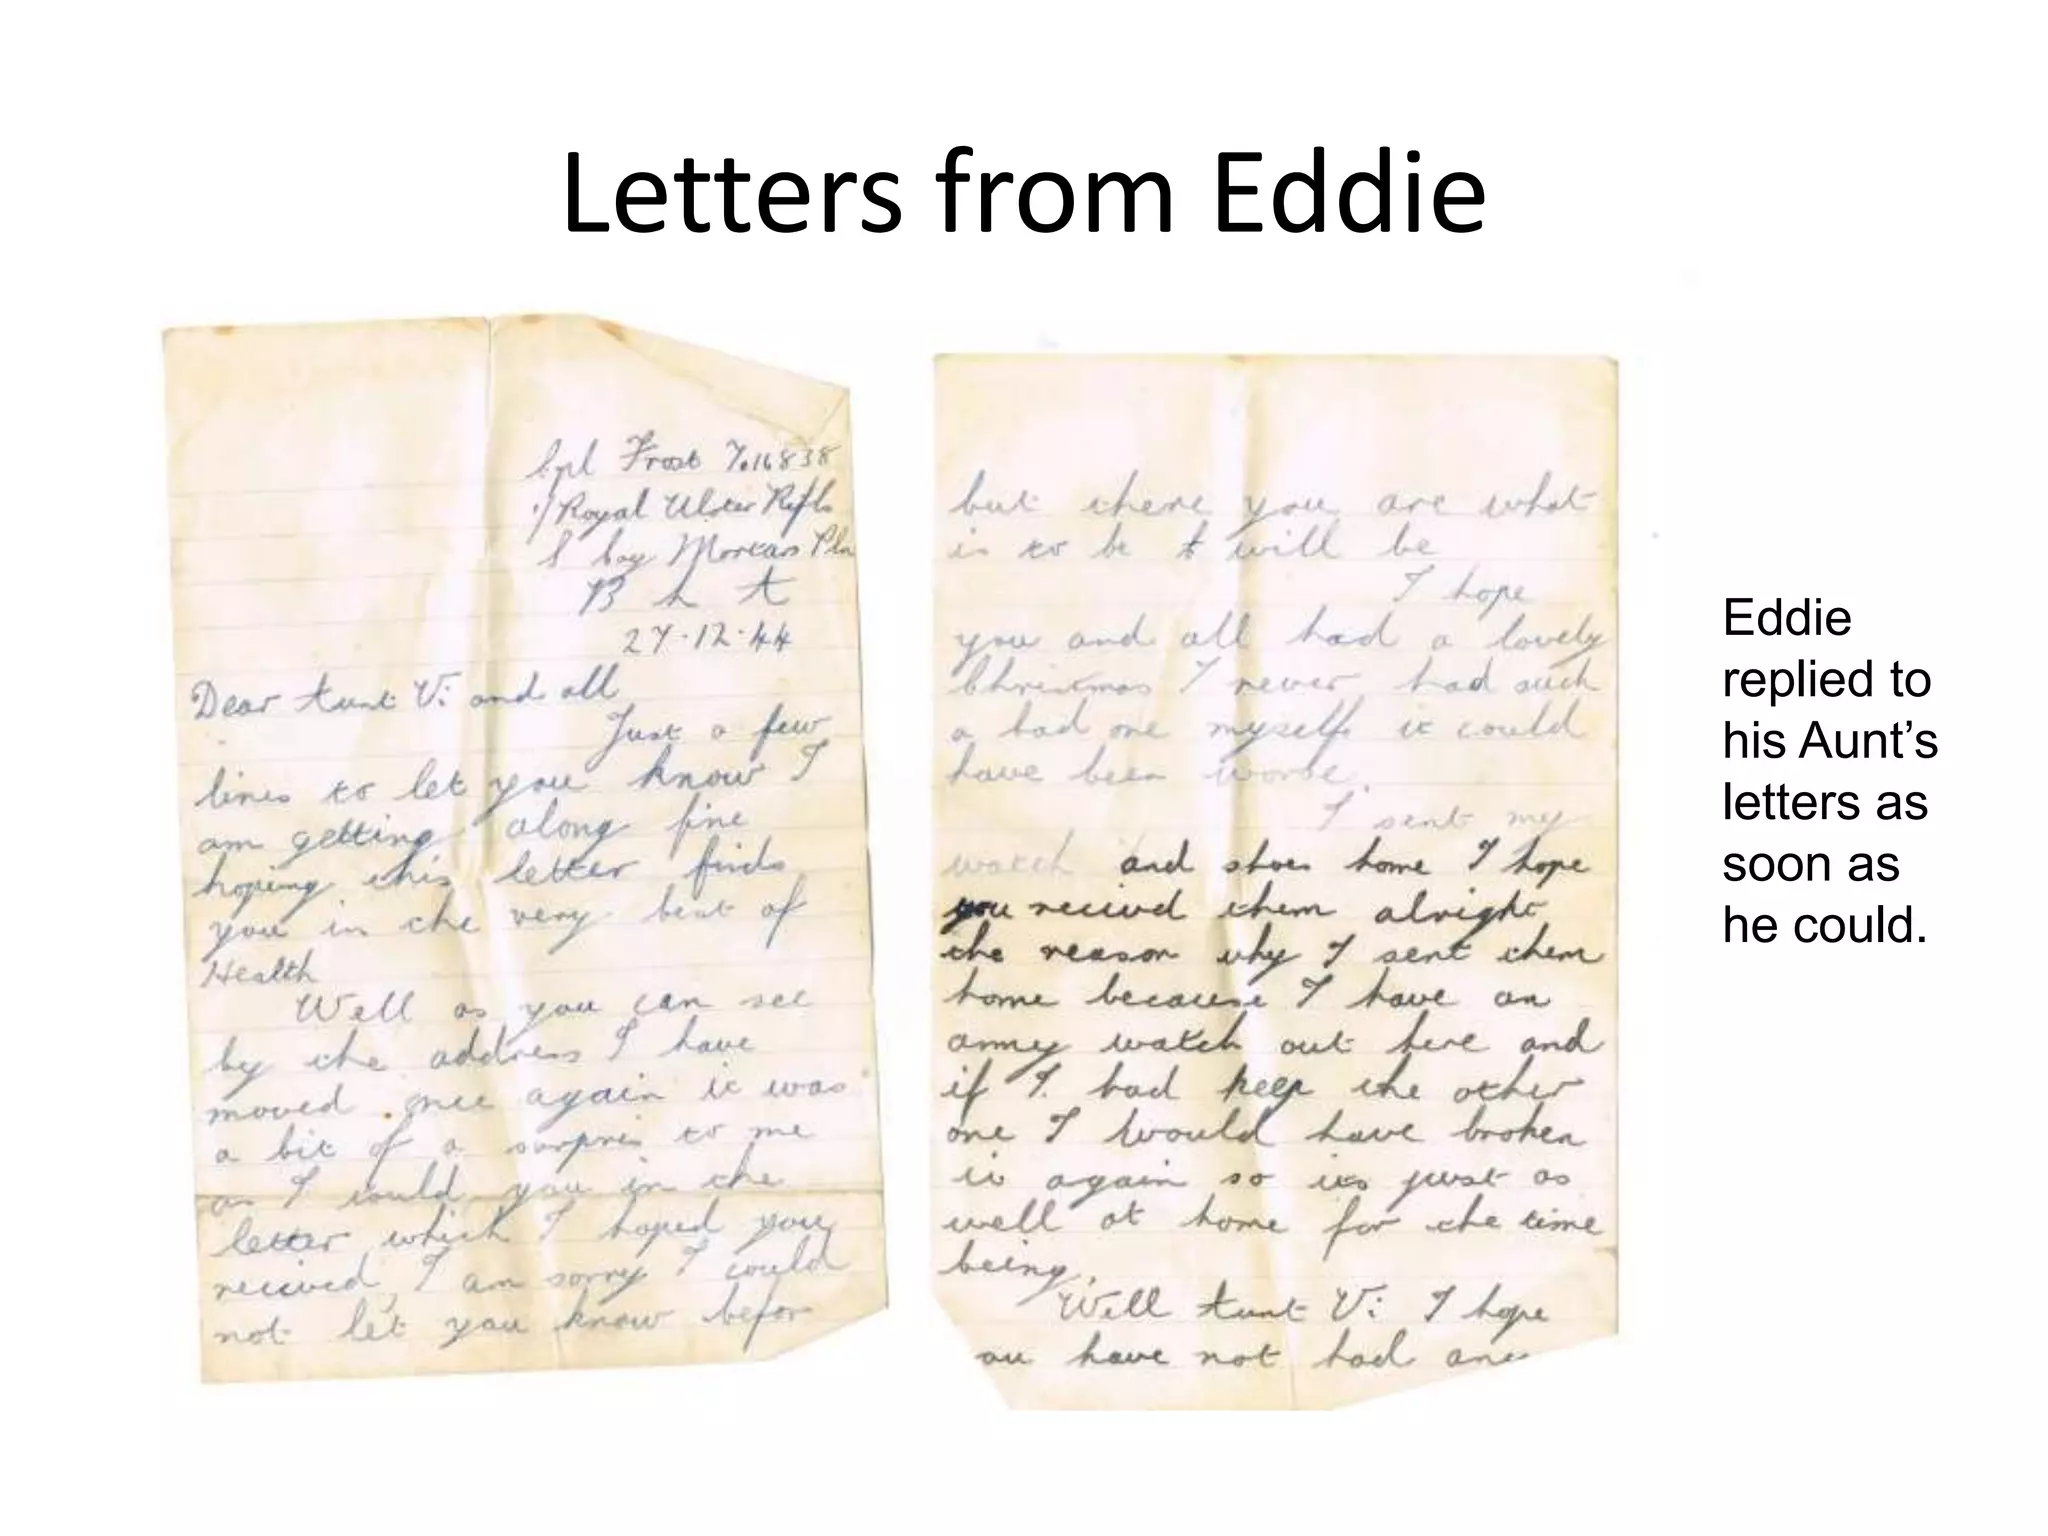 Letters from Eddie
Cpl Frost 7016838
1/Royal Ulster Rifls
S Coy Mortars Pln
B L A
27.12.44
Dear Aunt Vi and all
Just a few
lines to let you know I
am getting along fine
hoping this letter finds
you in the very best of
Health
Well as you can see
by the address I have
moved once again it was
a bit of a surpris to me
as I told you in the
letter which I hoped you
recived, I am sorry I could
not let you know befor
but there you are what
is to be it will be
I hope
you and all had a lovely
Christmas I never had such
a bad one myself it could
have been worse.
I sent my
watch and shoes home I hope
you recived them alright
the reason why I sent them
home because I have an
army watch out here and
if I had keep the other
one I would have broken
it again so its just as
well at home for the time
being.
Well Aunt Vi I hope
ou have not had any
Eddie
replied to
his Aunt’s
letters as
soon as
he could.